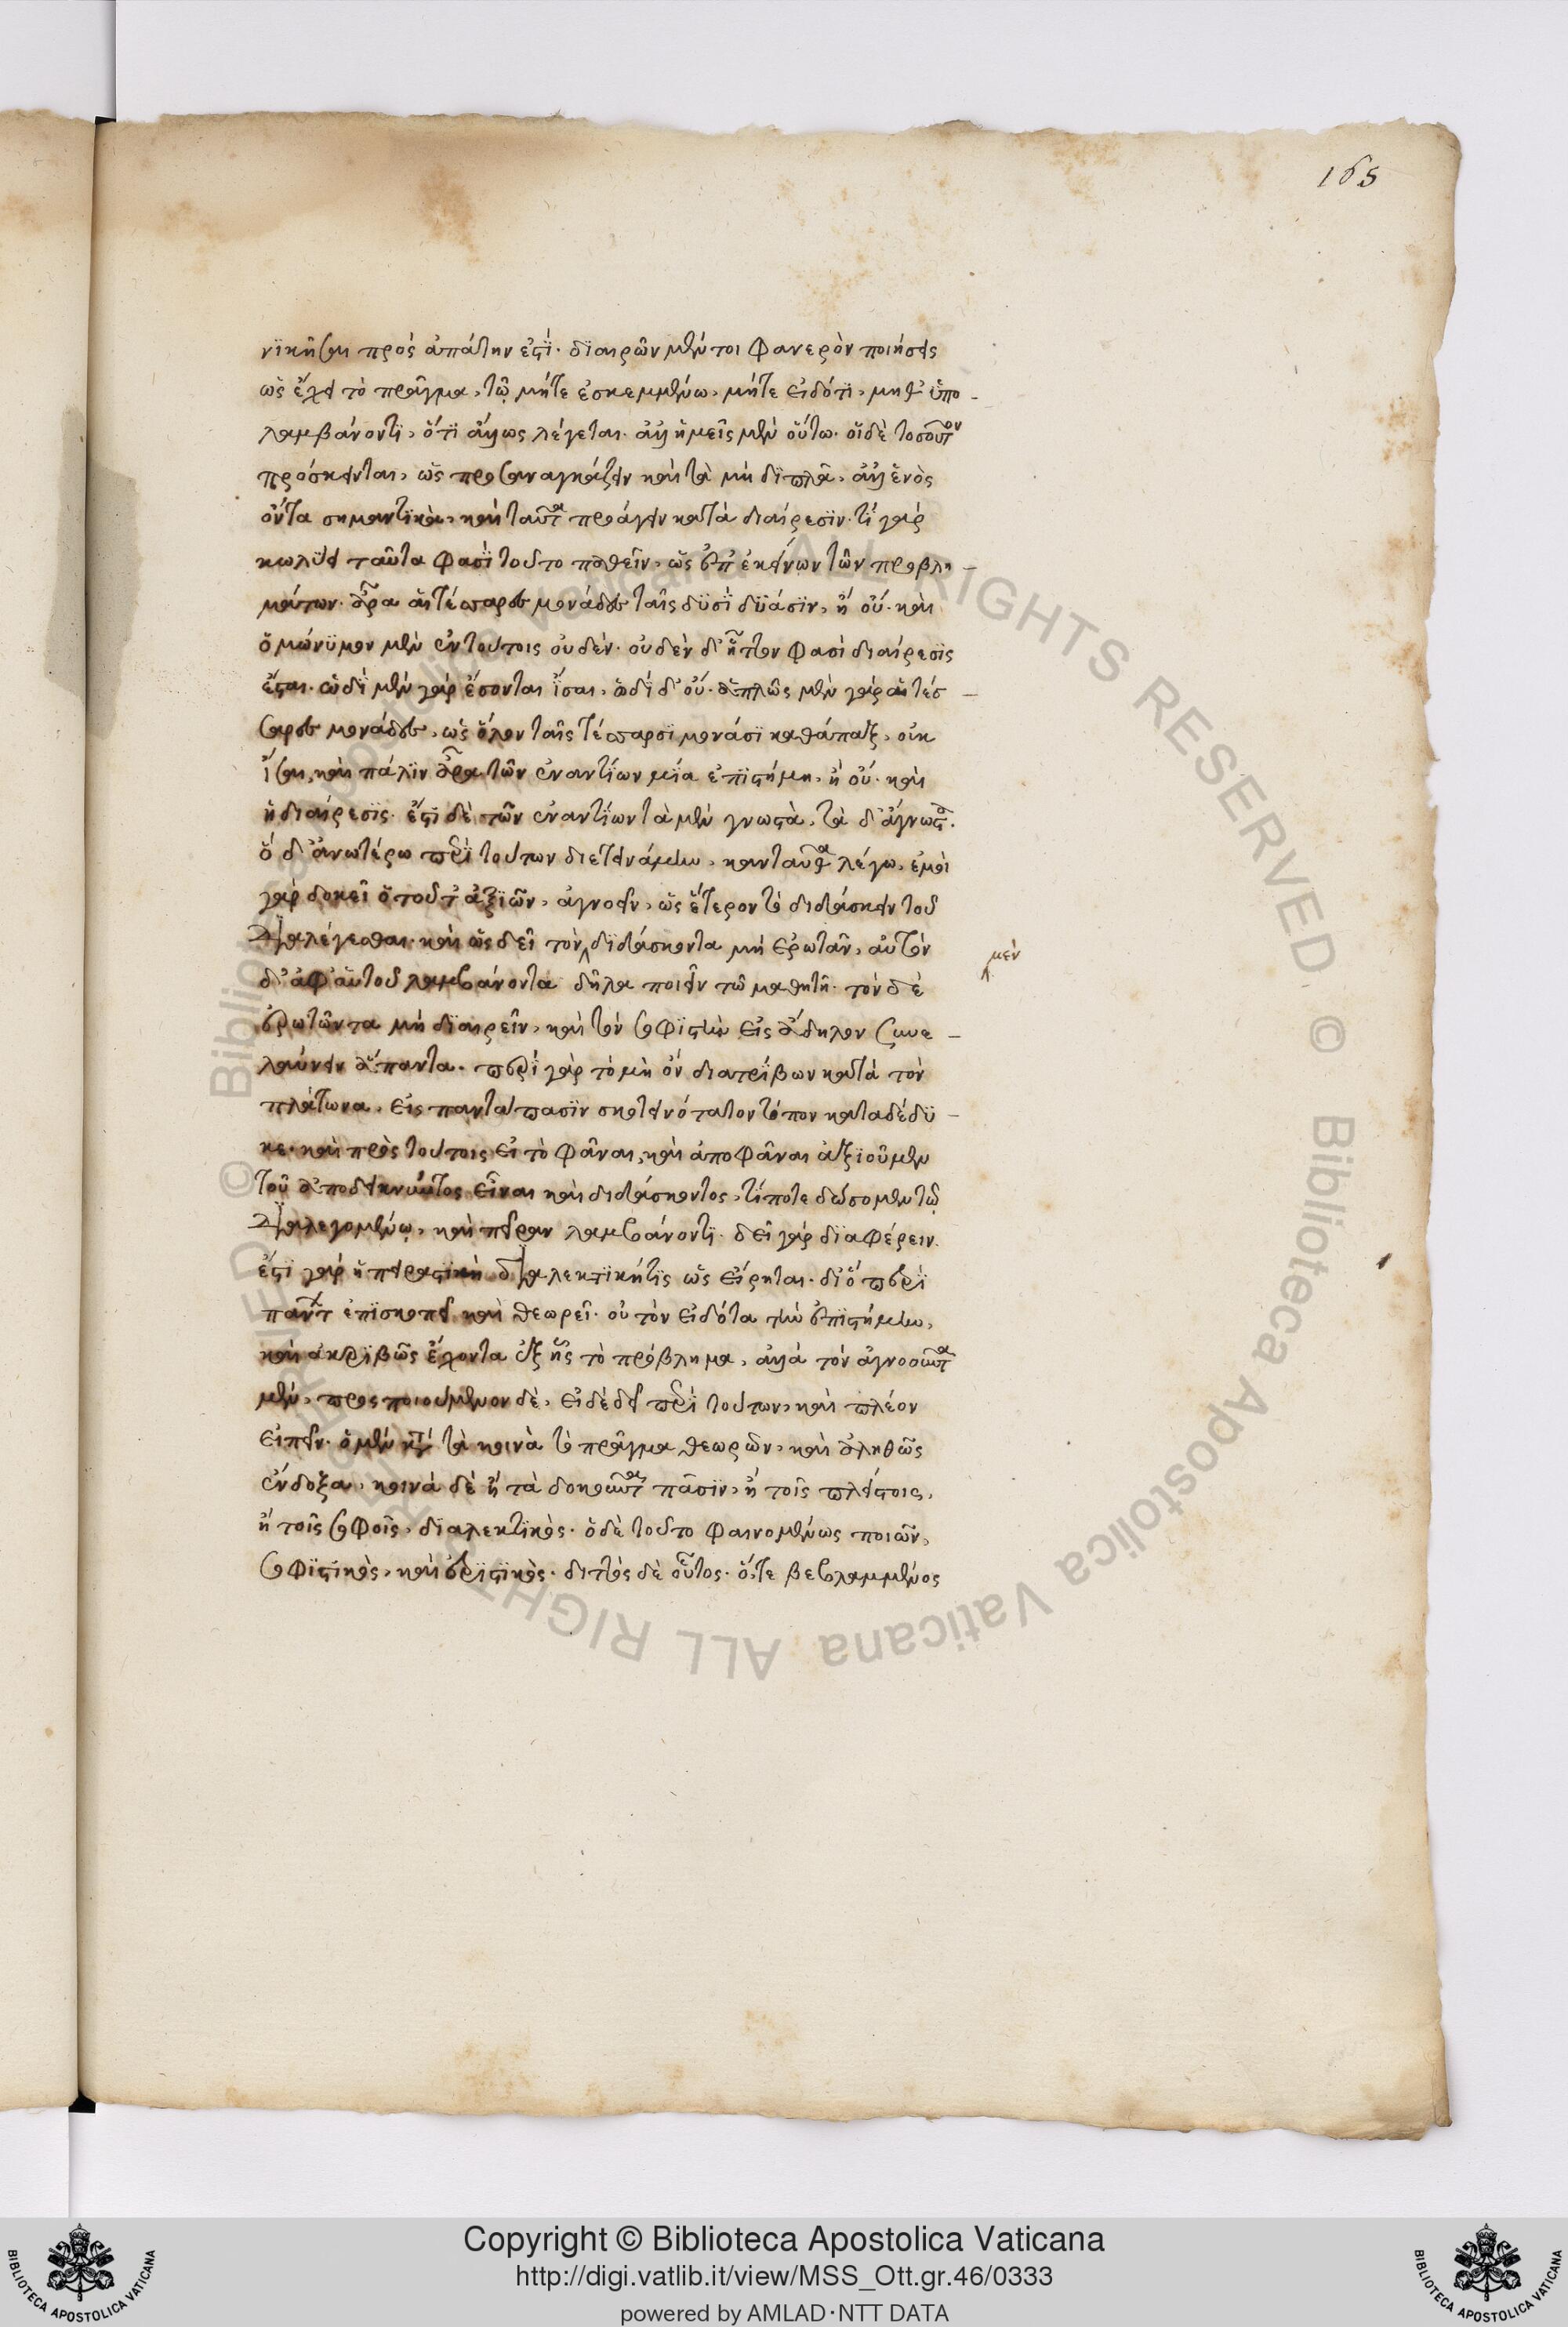 165
νϊκῆσαι πρὸς ἀπάτην ἐστί· διαιρῶν μέντοι φανερὸν ποιήσεις
ὡς ἔχει τὸ πρᾶγμα, τῷ μήτε ἐσκεμμένω, μήτε εἰδότι, μηθ' ὑπο-
λαμβάνοντι, ὅτι ἄλλως λέγεται. ἀλλ' ἡμεῖς μὲν οὕτω. οἱ δὲ τοσοῦτον
πρόσκεινται, ὡς προσαναγκάζειν καὶ τὰ μὴ διπλᾶ, ἀλλ' ἑνὸς
ὄντα σημαντικὰ, καὶ ταῦτα πράγειν κατὰ διαίρεσιν. τί γὰρ
κωλύει ταῦτα φασὶ τοῦτο παθεῖν, ὡς ἐπ' ἐκείνων τῶν προβλη-
μάτων. ἆρα αἱ τέσσαρες μονάδες ταῖς δυσὶ δυάσιν, ἢ οὔ. καὶ
ὁμώνυμον μὲν ἐν τούτοις οὐδέν. οὐδὲν δ' ἧττον φασὶ διαίρεσις
ἔσται. ὡδὶ μὲν γὰρ ἔσονται ἴσαι, ὡδὶ δ' οὔ. ἁπλῶς μὲν γὰρ αἱ τέσ-
σαρες μονάδες, ὡς ὅλον ταῖς τέσσαρσι μονάσι καθάπαξ, οὐκ
ἴσαι, καὶ πάλιν ἆρα τῶν ἐναντίων μία ἐπιστήμη, ἢ οὔ. καὶ
ἡ διαίρεσις. ἔστι δὲ τῶν ἐναντίων τὰ μὲν γνωστὰ, τὰ δ' ἄγνωστα.
ὃ δ' ἀνωτέρω περὶ τούτων διετεινάμην, κἀνταῦθα λέγω, ἐμοὶ
γὰρ δοκεῖ ὁ τοῦτ' ἀξιῶν, ἀγνοεῖν, ὡς ἕτερον τὸ διδάσκειν τοῦ
διαλέγεσθαι. καὶ ὡς δεῖ τὸν διδάσκοντα μὴ ἐρωτᾶν, αὐτὸν
μὲν
δ' ἀφ' αὑτοῦ λαμβάνοντα δῆλα ποιεῖν τῶ μαθητῆ. τὸν δὲ
ἐρωτῶντα μὴ διαιρεῖν, καὶ τὸν σοφιστὴν εἰς ἄδηλον συνε-
λαύνειν ἅπαντα. περὶ γὰρ τὸ μὴ ὂν διατρίβων κατὰ τὸν
πλάτωνα, εἰς παντάπασιν σκοτεινότατον τόπον καταδέδυ-
κε. καὶ πρὸς τούτοις εἰ τὸ φάναι, καὶ ἀποφάναι ἀξιοῦμεν
τοῦ ἀποδεικνύντος εἶναι καὶ διδάσκοντος, τί ποτε δώσομεν τῷ
διαλεγομένῳ, καὶ πεῖραν λαμβάνοντι. δεῖ γὰρ διαφέρειν.
ἔστι γὰρ ἡ πειραστικὴ διαλεκτικήτις ὡς εἴρηται. διὸ περὶ
πάντ' ἐπισκοπεῖ καὶ θεωρεῖ. οὐ τὸν εἰδότα τὴν ἐπιστήμην,
καὶ ἀκριβῶς ἔχοντα ἐξ ἧς τὸ πρόβλημα, ἀλλὰ τὸν ἀγνοοῦντα
μὲν, προσποιούμενον δὲ, εἰ δὲ δεῖ περὶ τούτων, καὶ πλέον
εἰπεῖν. ὁ μὲν κατὰ τὰ κοινὰ τὸ πρᾶγμα θεωρῶν, καὶ ἀληθῶς
ἔνδοξα, κοινὰ δὲ ἢ τὰ δοκοῦντα πᾶσιν, ἢ τοῖς πλείστοις,
ἢ τοῖς σοφοῖς, διαλεκτικός. ὁ δὲ τοῦτο φαινομένως ποιῶν,
σοφιστικὸς, καὶ ἐριστικός. διττὸς δὲ οὗτος. ὅ,τε βεβλαμμένος
Copyright © Biblioteca Apostolica Vaticana
http://digi.vatlib.it/view/MSS_Ott.gr.46/0333
powered by AMLAD·NTT DATA
BIBLIOTECA APOSTOLICA VATICANA
BIBLIOTECA APOSTOLICA VATICANA
© Biblioteca Apostolica Vaticana ALL RIGHTS RESERVED
© Biblioteca Apostolica Vaticana ALL RIGHTS RESERVED